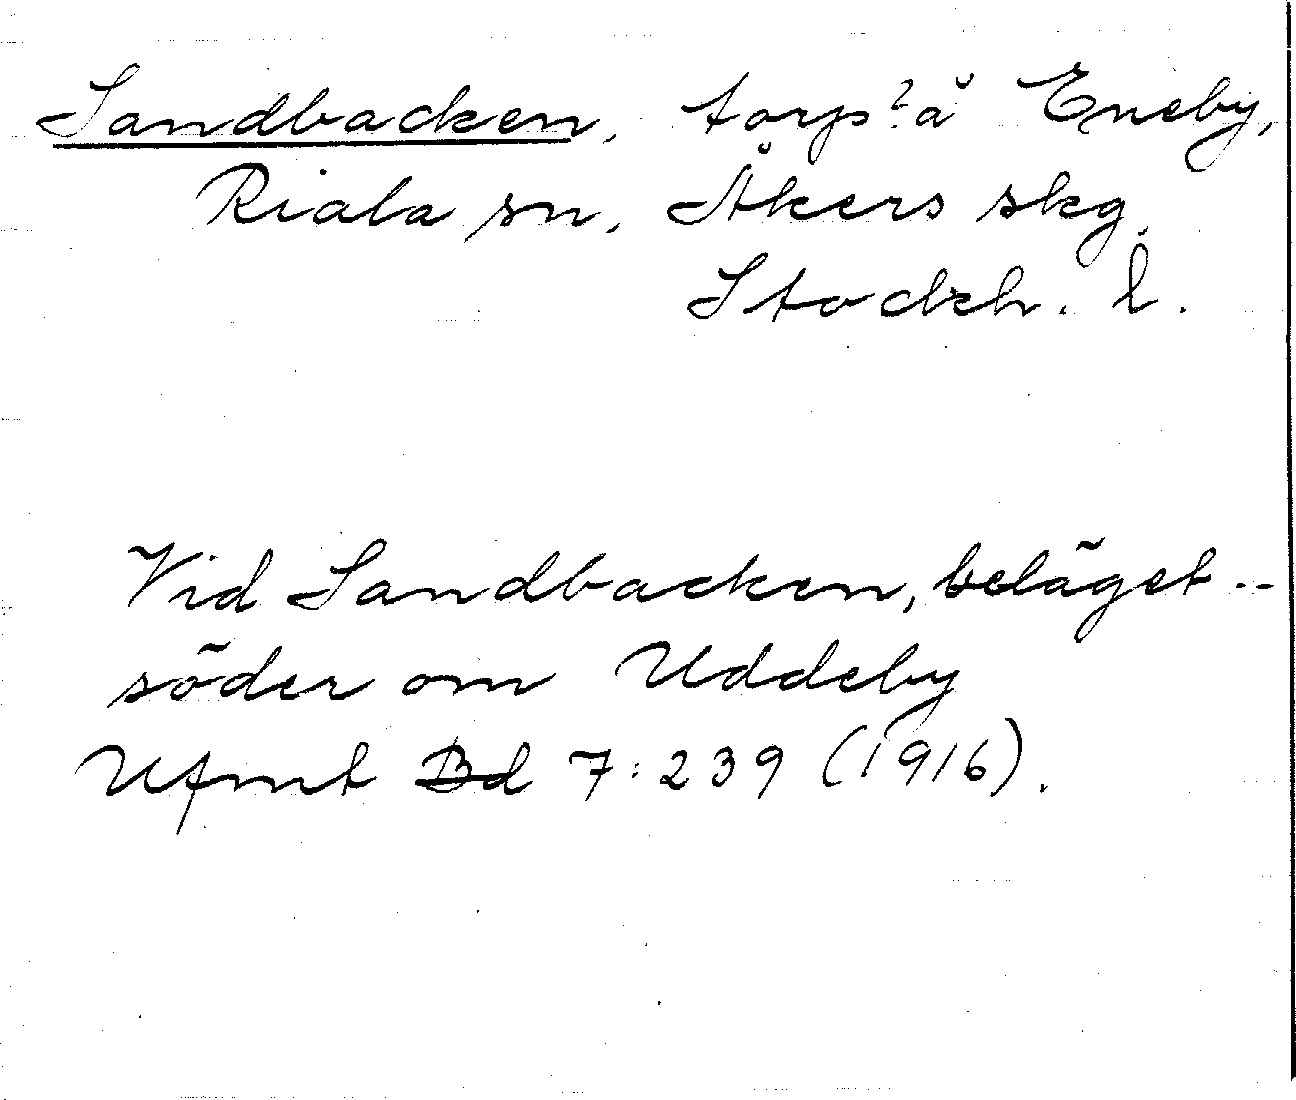 Sandbacken, torp? å Eneby,
Riala sn, Åkers skg
Stockh. l.
Vid Sandbacken, beläget --
söder om Uddeby
Ufmt Bd 7:239 (1916).